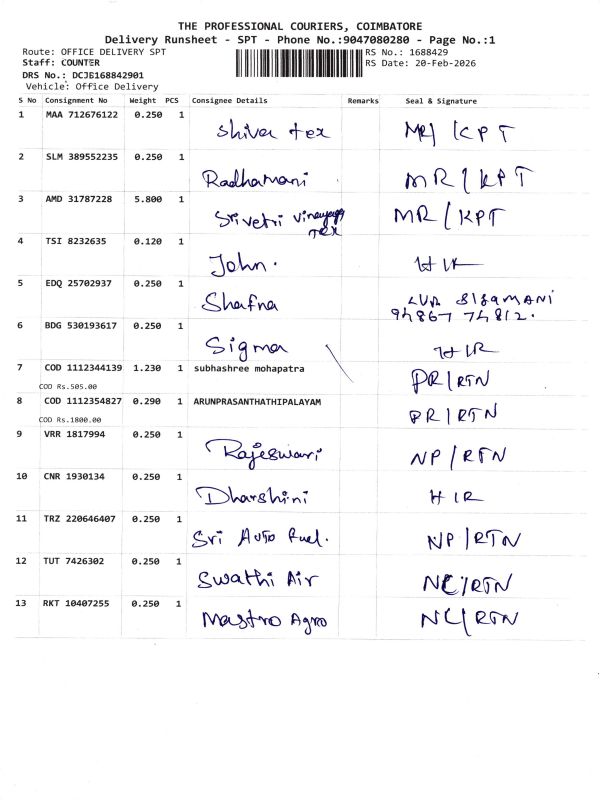 THE PROFESSIONAL COURIERS, COIMBATORE
Delivery Runsheet - SPT - Phone No.:9047080280 - Page No.:1
Route: OFFICE DELIVERY SPT
Staff: COUNTER
DRS No.: DCJB168842901
Vehicle: Office Delivery
RS No.: 1688429
RS Date: 20-Feb-2026
S No Consignment No Weight PCS Consignee Details Remarks Seal & Signature
1 MAA 712676122 0.250 1 Shiva tex MR/ KPT
2 SLM 389552235 0.250 1 Radhamani MR/KPT
3 AMD 31787228 5.800 1 Srivetri Vinayaga MR/KPT
Tex
4 TSI 8232635 0.120 1 John. HIR
5 EDQ 25702937 0.250 1 Shafna
94867 74812.
6 BDG 530193617 0.250 1 Sigma HIR
7 COD 1112344139 1.230 1 subhashree mohapatra PR/RTN
COD Rs.505.00
8 COD 1112354827 0.290 1 ARUNPRASANTHATHIPALAYAM PR/RTN
COD Rs.1800.00
9 VRR 1817994 0.250 1 Rajeswari NP/RTN
10 CNR 1930134 0.250 1 Dharshini HIR
11 TRZ 220646407 0.250 1 Sri Auto Fuel. NP/RTN
12 TUT 7426302 0.250 1 Swathi Air NC/RTN
13 RKT 10407255 0.250 1 Mastro Agro NC/RTN